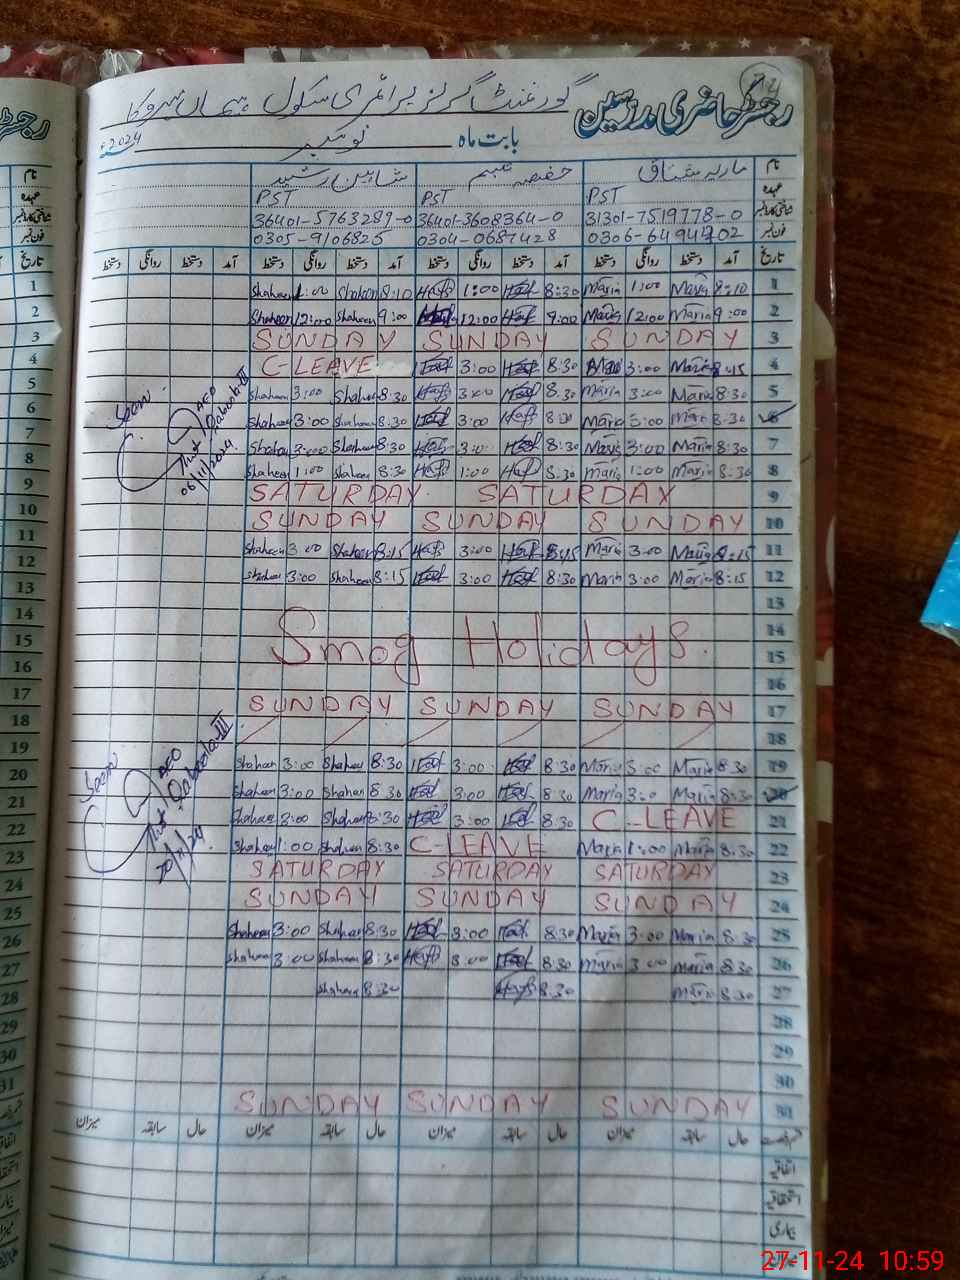 رجسٹر حاضری مدرسین گورنمنٹ گرلز پرائمری سکول
بابت ماہ نومبر 2024ء
نام ماریہ مشتاق حفصہ تبسم شاہین رشید
عہدہ PST PST PST
شناختی کارڈ نمبر 31301-7519778-0 36401-3608364-0 36401-5763289-0
فون نمبر 0306-6494702 0304-0687428 0305-9106825
تاریخ آمد دستخط روانگی دستخط آمد دستخط روانگی دستخط آمد دستخط روانگی دستخط آمد دستخط روانگی دستخط
1 Shaheen 1:00 Shaheen 8:10 Haf 1:00 Haf 8:30 Maria 1:00 Maria 8:10 1
2 Shaheen 12:00 Shaheen 9:00 12:00 Haf 9:00 Maria 12:00 Maria 9:00 2
3 SUNDAY SUNDAY SUNDAY 3
4 C-LEAVE Haf 3:00 Haf 8:30 3:00 Maria 8:15 4
5 Shaheen 3:00 Shaheen 8:30 Haf 3:00 Haf 8:30 Maria 3:00 Maria 8:30 5
6 Shaheen 3:00 Shaheen 8:30 Haf 3:00 Haf 8:30 Maria 3:00 Maria 8:30 6
7 Shaheen 3:00 Shaheen 8:30 Haf 3:00 Haf 8:30 Maria 3:00 Maria 8:30 7
8 Shaheen 1:00 Shaheen 8:30 Haf 1:00 Haf 8:30 Maria 1:00 Maria 8:30 8
Seen
AEO
06/11/2024
9 SATURDAY SATURDAY 9
10 SUNDAY SUNDAY SUNDAY 10
11 Shaheen 3:00 Shaheen 8:15 Haf 3:00 Haf 8:15 Maria 3:00 Maria 8:15 11
12 Shaheen 3:00 Shaheen 8:15 Haf 3:00 Haf 8:30 Maria 3:00 Maria 8:15 12
13 13
14 Smog Holidays. 14
15 15
16 16
17 SUNDAY SUNDAY SUNDAY 17
18 18
19 Shaheen 3:00 Shaheen 8:30 Haf 3:00 Haf 8:30 Maria 3:00 Maria 8:30 19
20 Shaheen 3:00 Shaheen 8:30 Haf 3:00 Haf 8:30 Maria 3:00 Maria 8:30 20
21 Shaheen 3:00 Shaheen 8:30 Haf 3:00 Haf 8:30 C-LEAVE 21
22 Shaheen 1:00 Shaheen 8:30 C-LEAVE Maria 1:00 Maria 8:30 22
Seen
AEO
20/11/24
23 SATURDAY SATURDAY SATURDAY 23
24 SUNDAY SUNDAY SUNDAY 24
25 Shaheen 3:00 Shaheen 8:30 Haf 3:00 Haf 8:30 Maria 3:00 Maria 8:30 25
26 Shaheen 3:00 Shaheen 8:30 Haf 3:00 Haf 8:30 Maria 3:00 Maria 8:30 26
27 Shaheen 8:30 Haf 8:30 Maria 8:30 27
28 28
29 29
30 30
31 SUNDAY SUNDAY SUNDAY 31
حال سابقہ میزان حال سابقہ میزان حال سابقہ میزان حال سابقہ میزان
اتفاقیہ
استحقاقیہ
بیماری
میزان
27-11-24 10:59